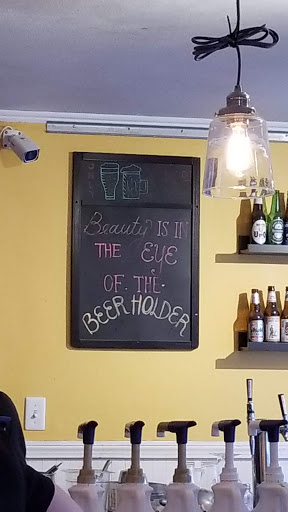 Beauty IS IN
THE EYE
OF THE
BEER HOLDER